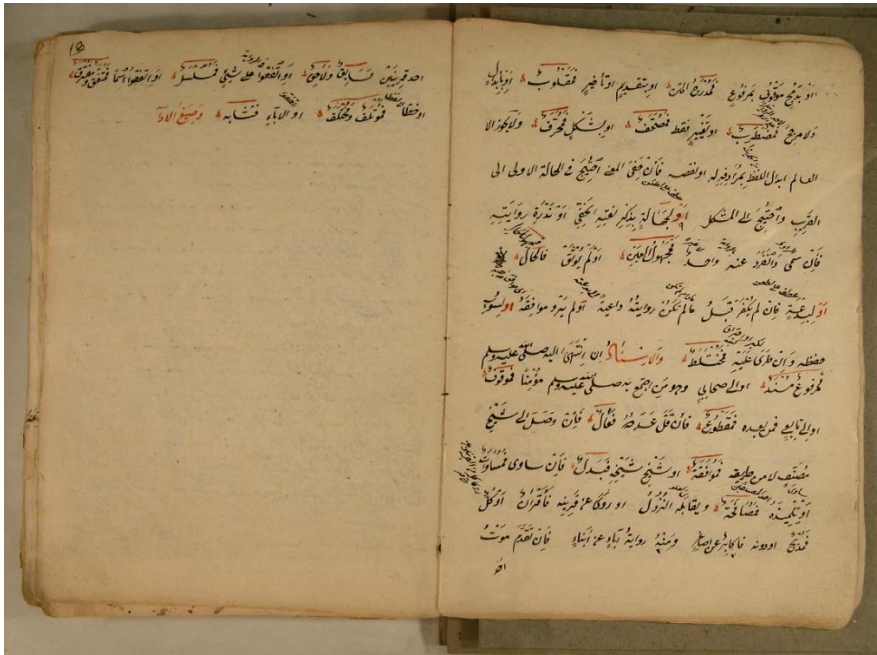 او بدمج موقوف بمرفوع فمدرج المتن او بتقديم او تاخير فمقلوب او بابدال
ولا مرجح فمضطرب او بتغيير نقط فمصحف او بشكل فمحرف ولا يجوز الا
لعالم ابدال اللفظ بمرادف له او نقصه فان خفى المعنى احتيج فى الحالة الاولى الى
الغريب واحتيج الى المشكل او لجهالة بذكر نعته الخفى او ندرة روايته
فان سمى وانفرد عنه واحد فمجهول العين او لم يوثق فالحال
او لبدعة فان لم يكفر قبل ما لم تكن روايته داعية او لم يرو موافقه او لسوء
حفظه وان طرى عليه فمختلط والاسناد ان انتهى اليه صلى الله عليه وسلم
فمرفوع مسند او الى صحابى وهو من اجتمع به صلى الله عليه وسلم مؤمنا فموقوف
او الى تابعى فمن بعده فمقطوع فان قل عدده فعال فان وصل الى شيخ
مصنف لا من طريقه فموافقة او شيخ شيخه فبدل فان ساوى فمساواة
او تلميذه فمصافحة ويقابله النزول او روى عن قرينه فاقران او كل
فمدبج او دونه فاكابر عن اصاغر ومنه رواية آباء عن ابناء فان تقدم موت
احد
احد قرينين فسابق ولاحق او اتفقوا على شيئ فمسلسل او اتفقوا اسما فمتفق ومفترق
او خطا فمؤتلف ومختلف او الاباء فمتشابه وصيغ الادآ